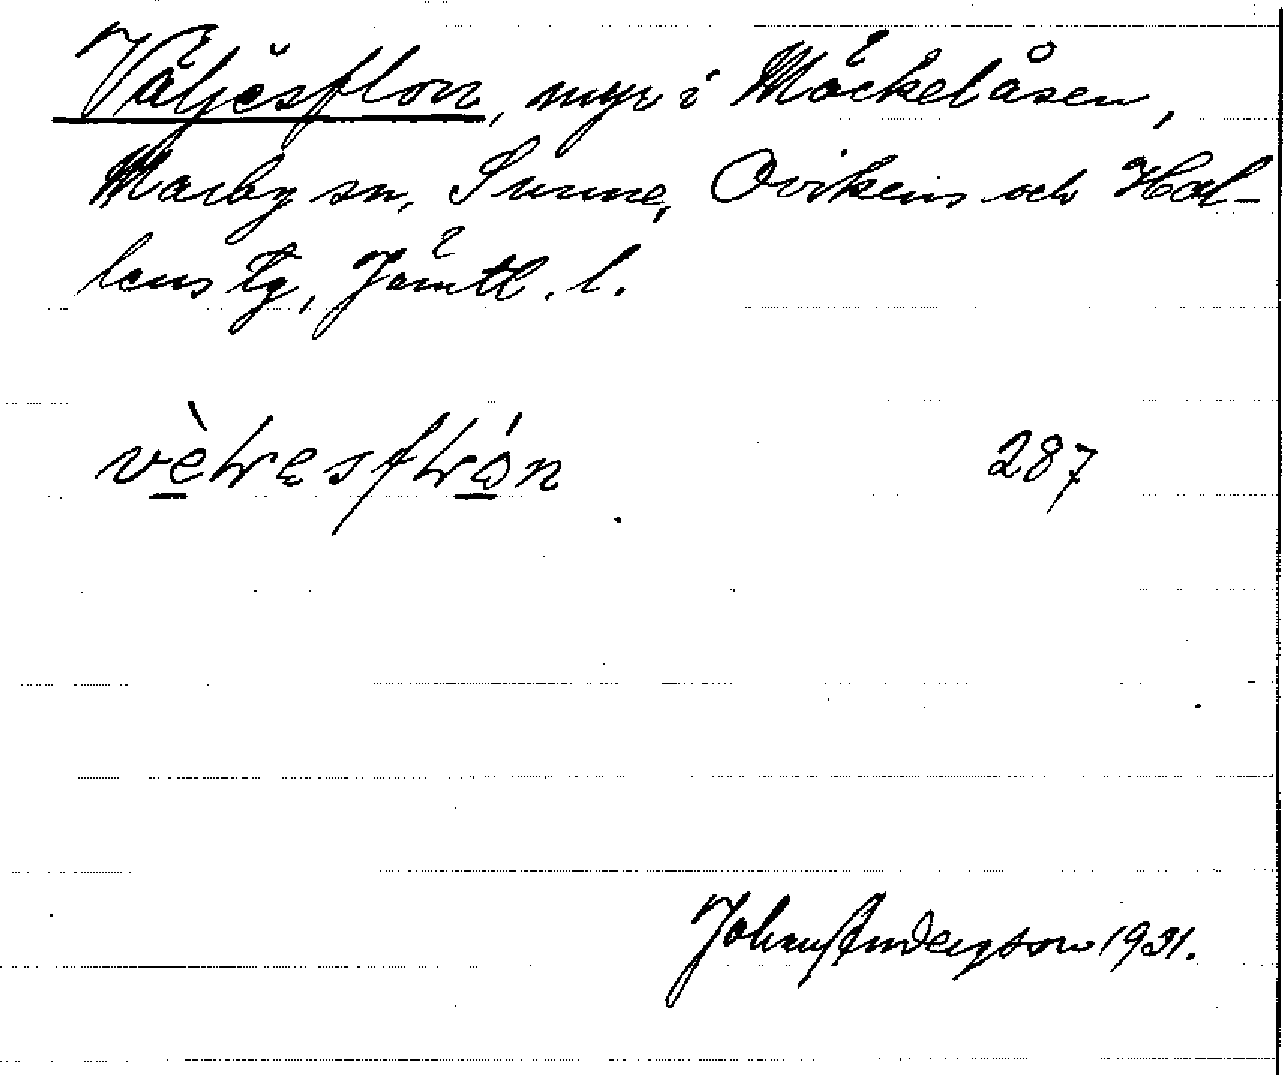 Väljesflon, myr i Möckelåsen,
Marby sn, Sunne, Ovikens och Hal-
lens tg, Jämtl. l.
287
Johan Anderson 1931.